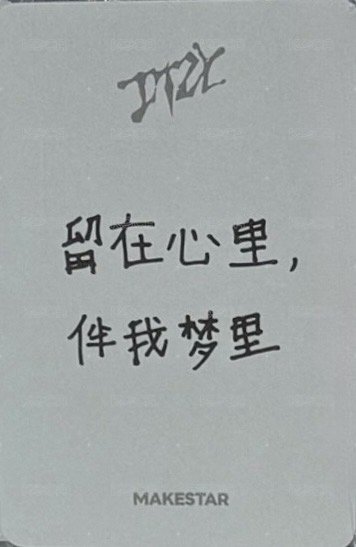 ITZY
留在心里，
伴我梦里
MAKESTAR